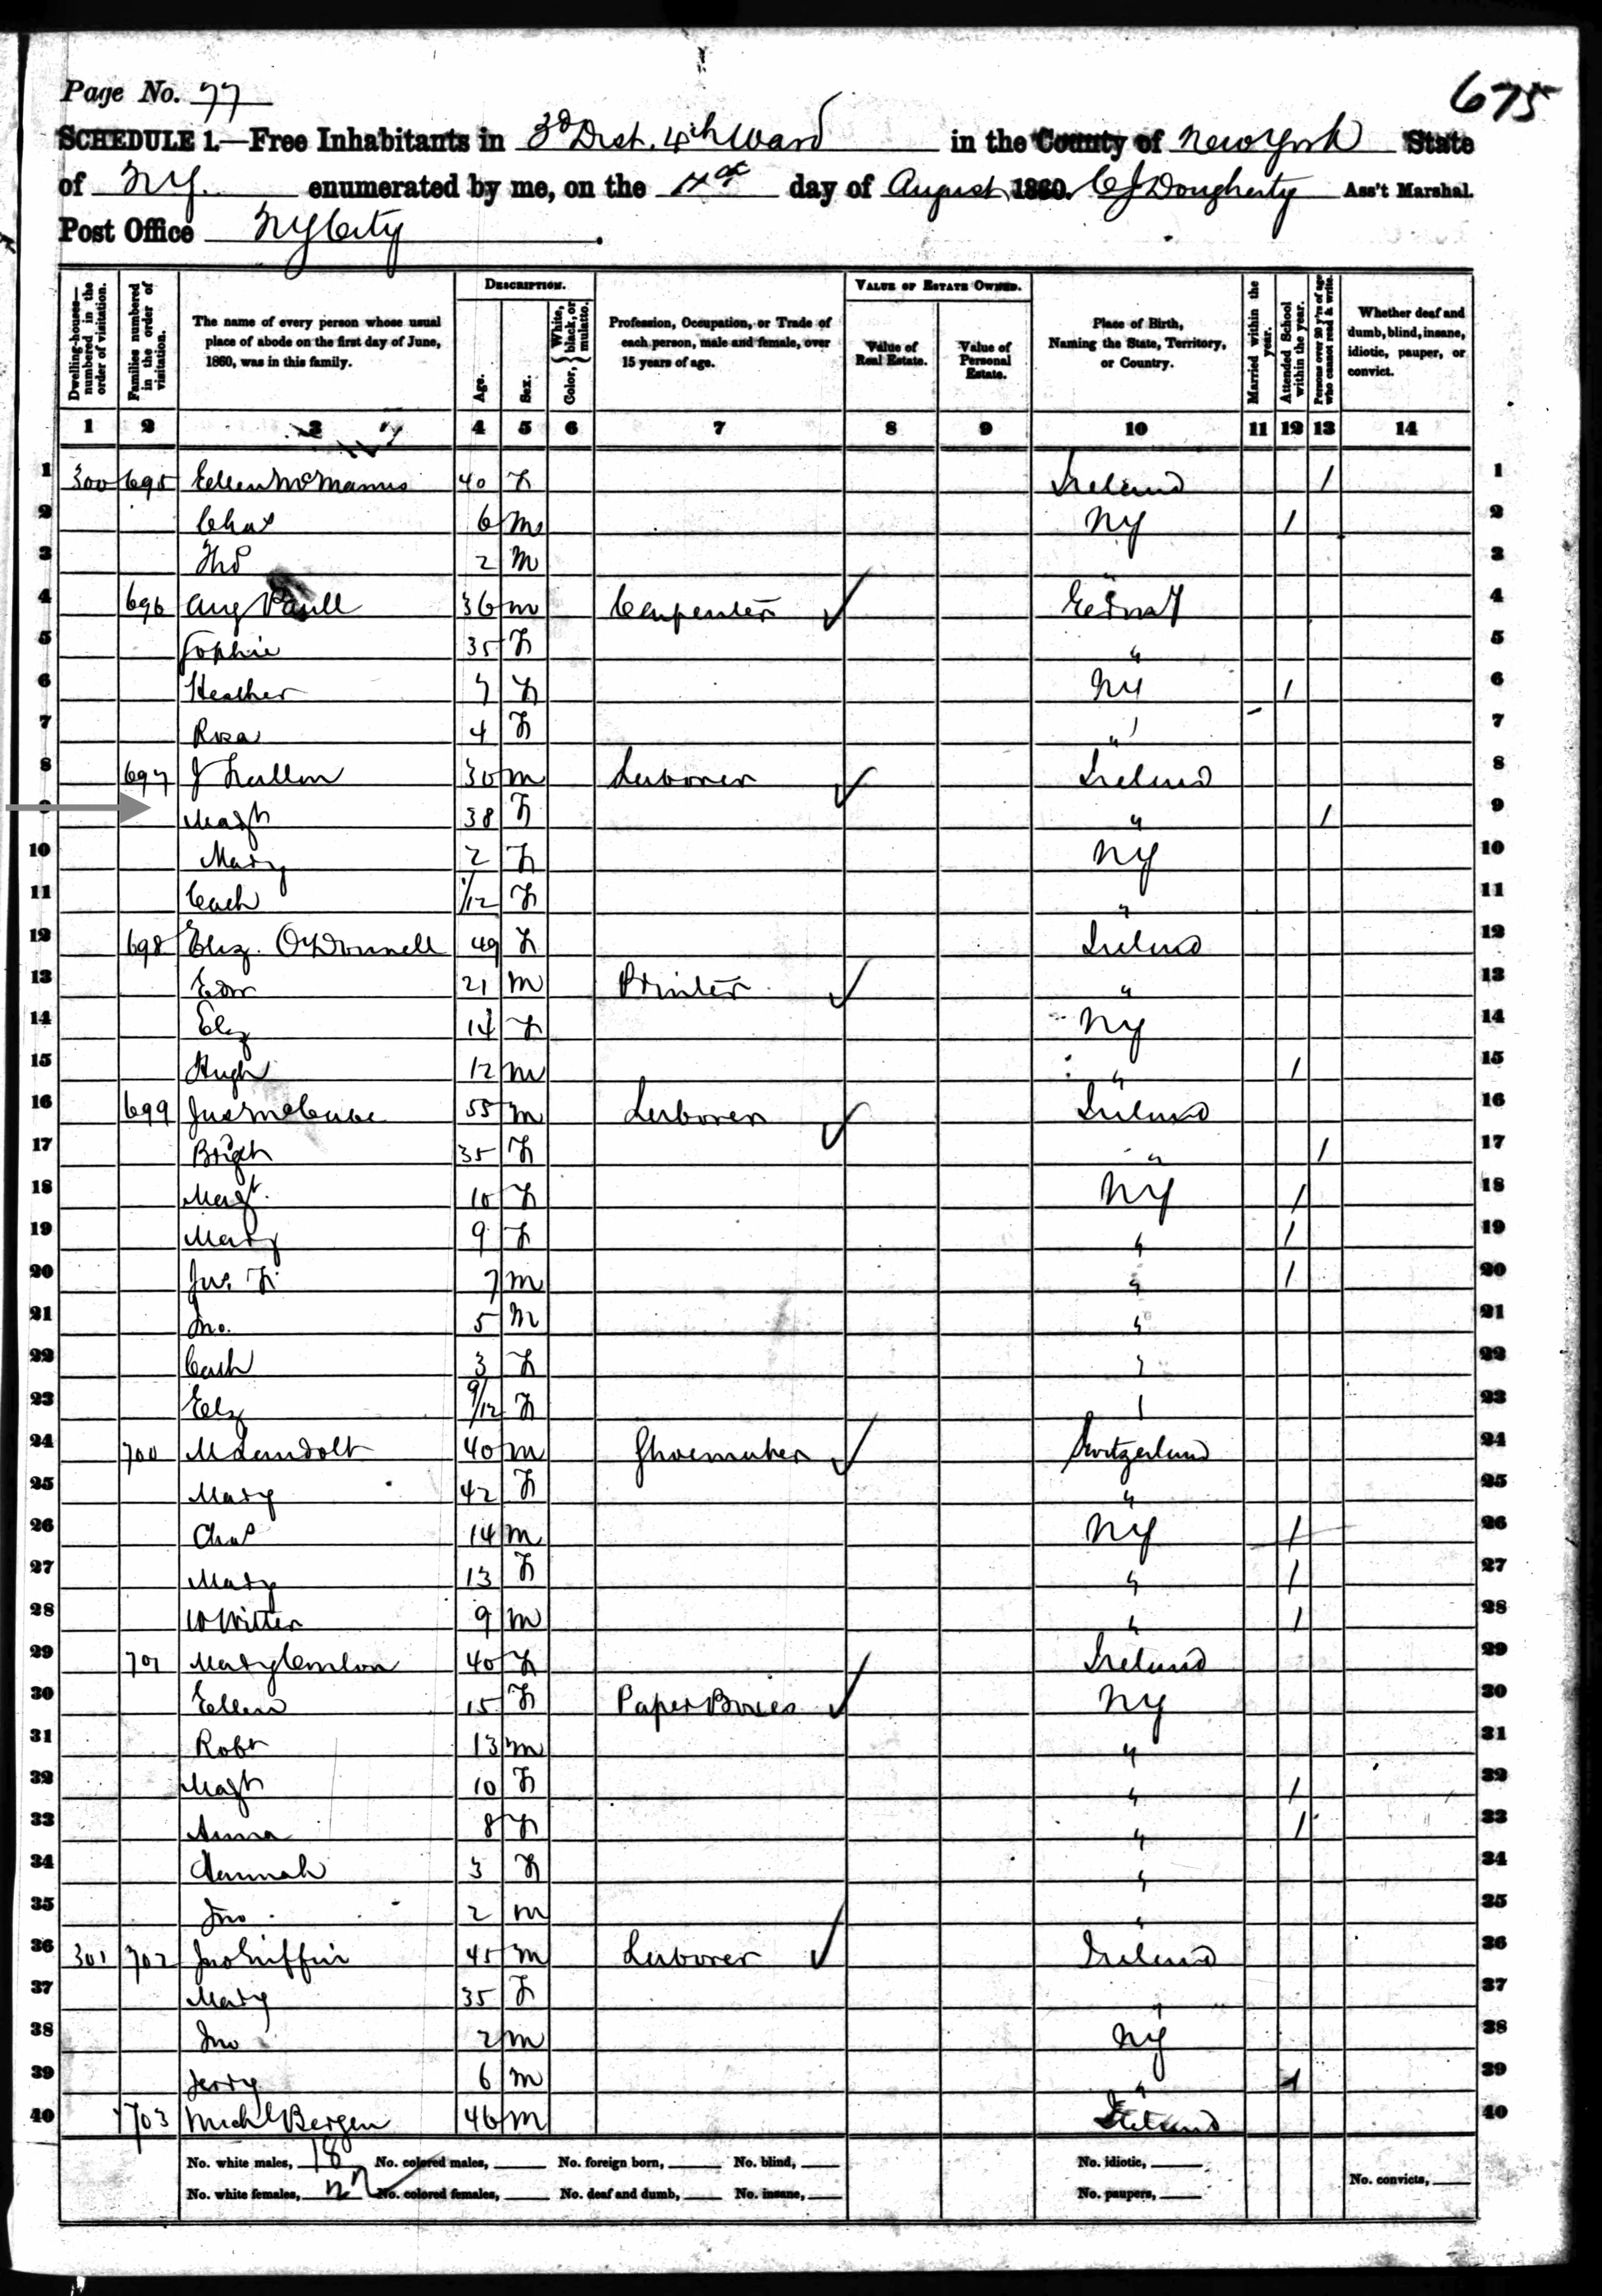 Page No. 77
675
SCHEDULE 1.—Free Inhabitants in 3d Dist. 4th Ward in the County of New York State
of N.Y. enumerated by me, on the day of August 1860. CJ Dougherty Ass't Marshal.
Post Office NY City
Dwelling-houses—numbered in the order of visitation.
Families numbered in the order of visitation.
The name of every person whose usual place of abode on the first day of June, 1860, was in this family.
DESCRIPTION.
Age.
Sex.
Color, { White, black, or mulatto.
Profession, Occupation, or Trade of each person, male and female, over 15 years of age.
VALUE OF ESTATE OWNED.
Value of Real Estate.
Value of Personal Estate.
Place of Birth, Naming the State, Territory, or Country.
Married within the year.
Attended School within the year.
Persons over 20 y'rs of age who cannot read & write.
Whether deaf and dumb, blind, insane, idiotic, pauper, or convict.
1 2 3 4 5 6 7 8 9 10 11 12 13 14
1 300 695 Ellen McManus 40 F Ireland / 1
2 Chas 6 M NY / 2
3 Thos 2 M 3
4 696 Aug 36 M Carpenter ✓ 4
5 Sophie 35 F " 5
6 Heather 7 F NY / 6
7 Rosa 4 F " 7
8 697 J 30 M Laborer ✓ Ireland 8
9 Magt 38 F " / 9
10 Mary 2 F NY 10
11 Cath 1/12 F " 11
12 698 Eliz. O'Donnell 49 F Ireland 12
13 Edw 21 M Printer ✓ " 13
14 Eliz 14 F NY 14
15 Hugh 12 M " / 15
16 699 Jas McCabe 55 M Laborer ✓ Ireland 16
17 Bridgt 35 F " / 17
18 Magt. 10 F NY / 18
19 Mary 9 F " / 19
20 Jas. F 7 M " / 20
21 Jno. 5 M " 21
22 Cath 3 F " 22
23 Eliz 9/12 F " 23
24 700 M Landolt 40 M Shoemaker ✓ Switzerland 24
25 Mary 42 F " 25
26 Chas 14 M NY / 26
27 Mary 13 F " / 27
28 W Witter 9 M " / 28
29 701 Mary Conlon 40 F Ireland 29
30 Ellen 15 F Paper Boxes ✓ NY 30
31 Robt 13 M " 31
32 Magt 10 F " / 32
33 Anna 8 F " / 33
34 Hannah 3 F " 34
35 Jno. 2 M " 35
36 301 702 Jno Griffin 45 M Laborer ✓ Ireland 36
37 Mary 35 F " 37
38 Jno 2 M NY 38
39 Jerry 6 M " 1 39
40 703 Michl Bergen 46 M Ireland 40
No. white males, 18 No. colored males, No. foreign born, No. blind, No. idiotic,
No. white females, 22 No. colored females, No. deaf and dumb, No. insane, No. paupers, No. convicts,